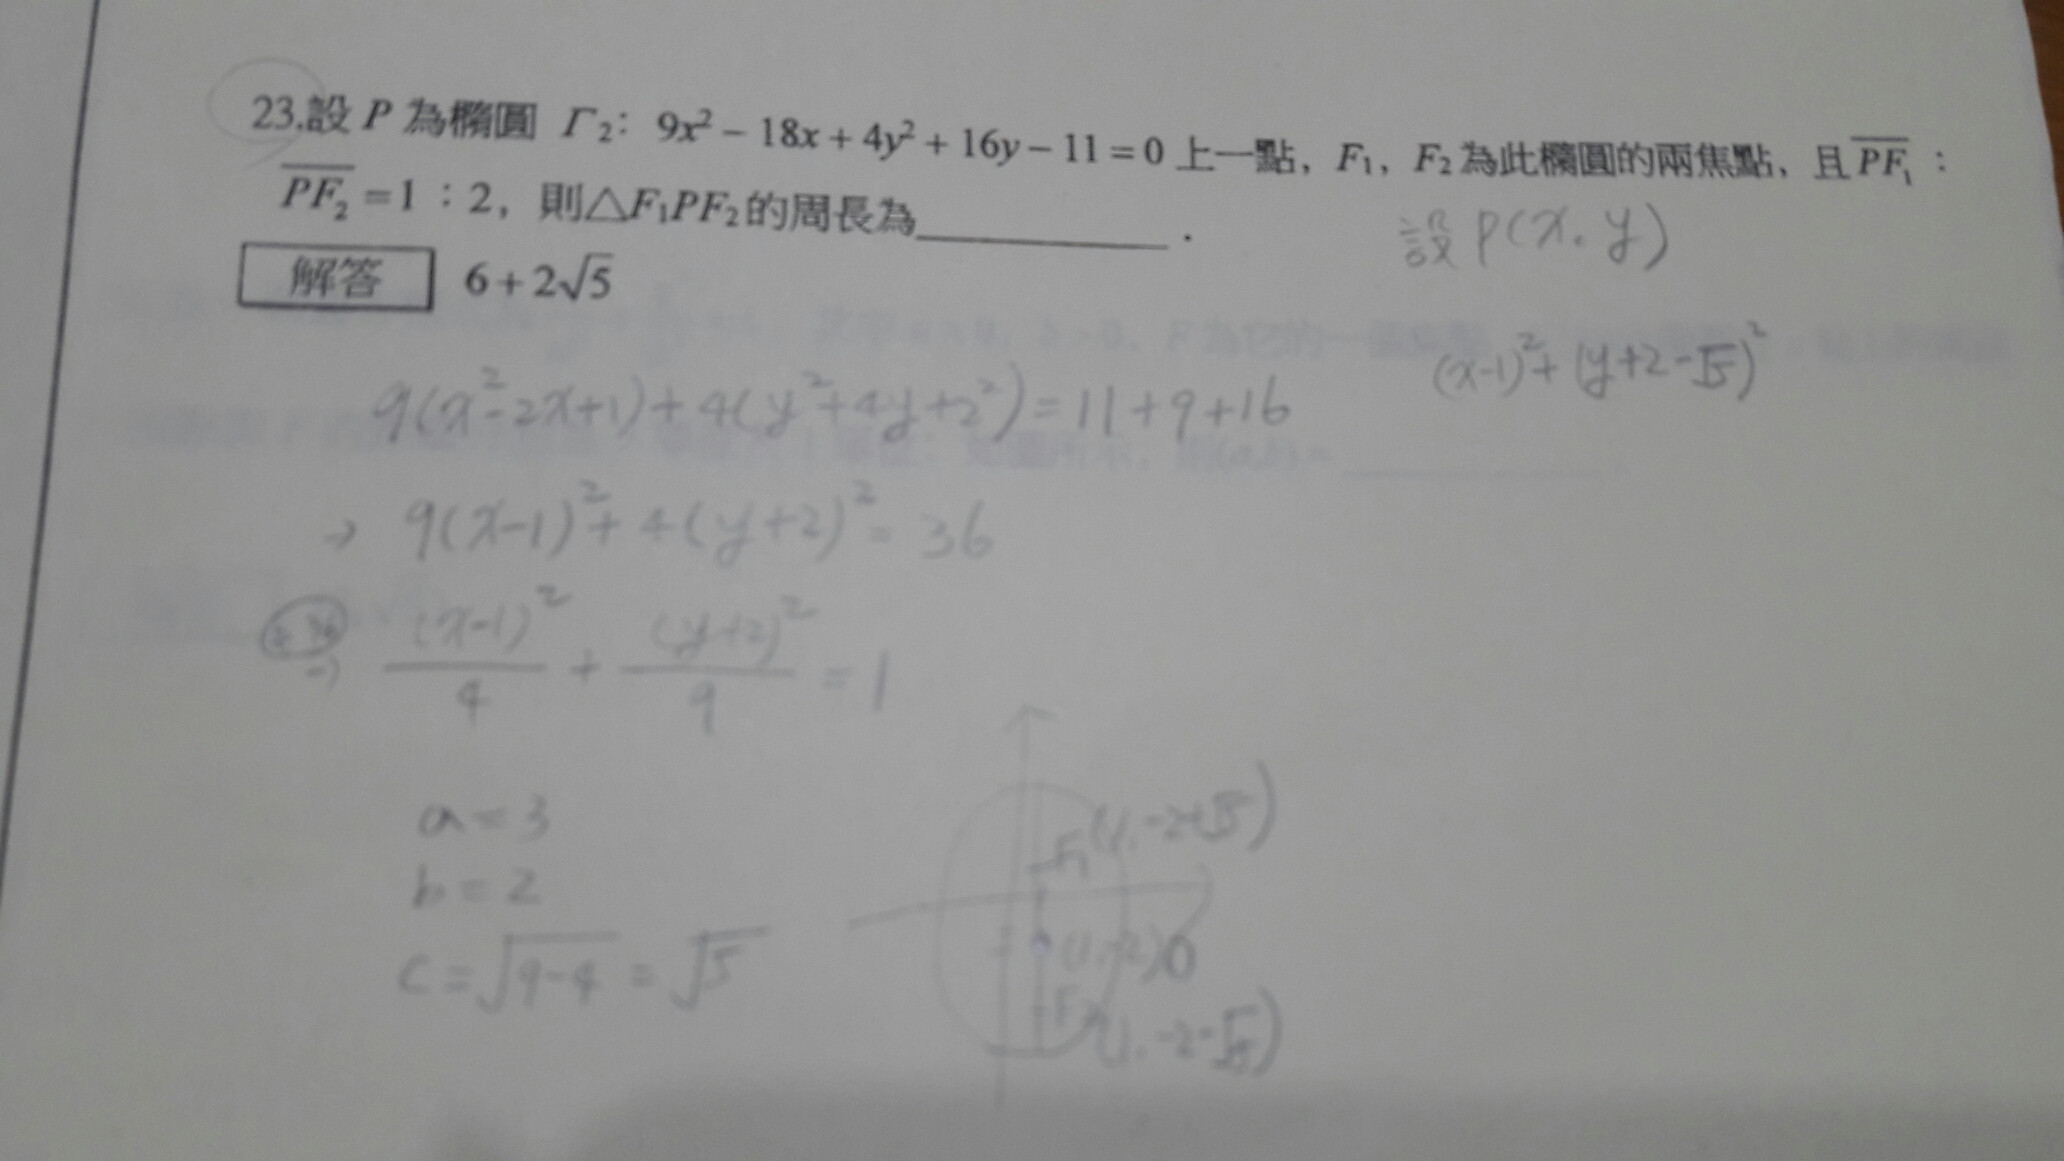 23.設 P 為橢圓 Γ₂：9x² − 18x + 4y² + 16y − 11 = 0 上一點，F₁，F₂ 為此橢圓的兩焦點，且 \overline{PF₁}：
\overline{PF₂} = 1：2，則△F₁PF₂的周長為__________．
設 P(x, y)
解答 6 + 2√5
(x-1)² + (y+2-√5)²
9(x²-2x+1)+4(y²+4y+2²)=11+9+16
→ 9(x-1)²+4(y+2)²=36
÷36
→ (x-1)²/4 + (y+2)²/9 = 1
a=3
b=2
c=√(9-4)=√5
F₁(1,-2+√5)
(1,-2)O
F₂(1,-2-√5)